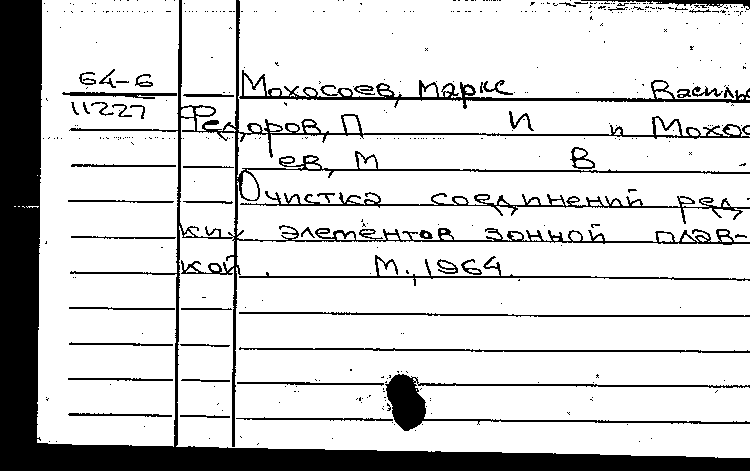 64-6 Мохосоев, Маркс Василь
11227 Федоров, П И и Мохос
ев, М В
Очистка соединений ред-
ких элементов зонной плав-
кой. М., 1964.